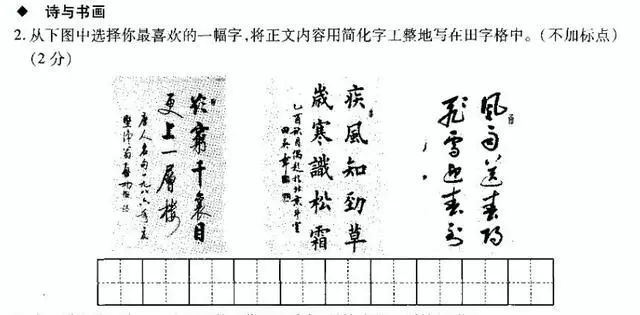 ◆ 诗与书画
2. 从下图中选择你最喜欢的一幅字,将正文内容用简化字工整地写在田字格中。(不加标点)
(2 分)
欲窮千裏目
更上一層樓
唐人名句一九八六年夏
疾風知勁草
歲寒識松霜
田英章
風雨送春歸
飛雪迎春到